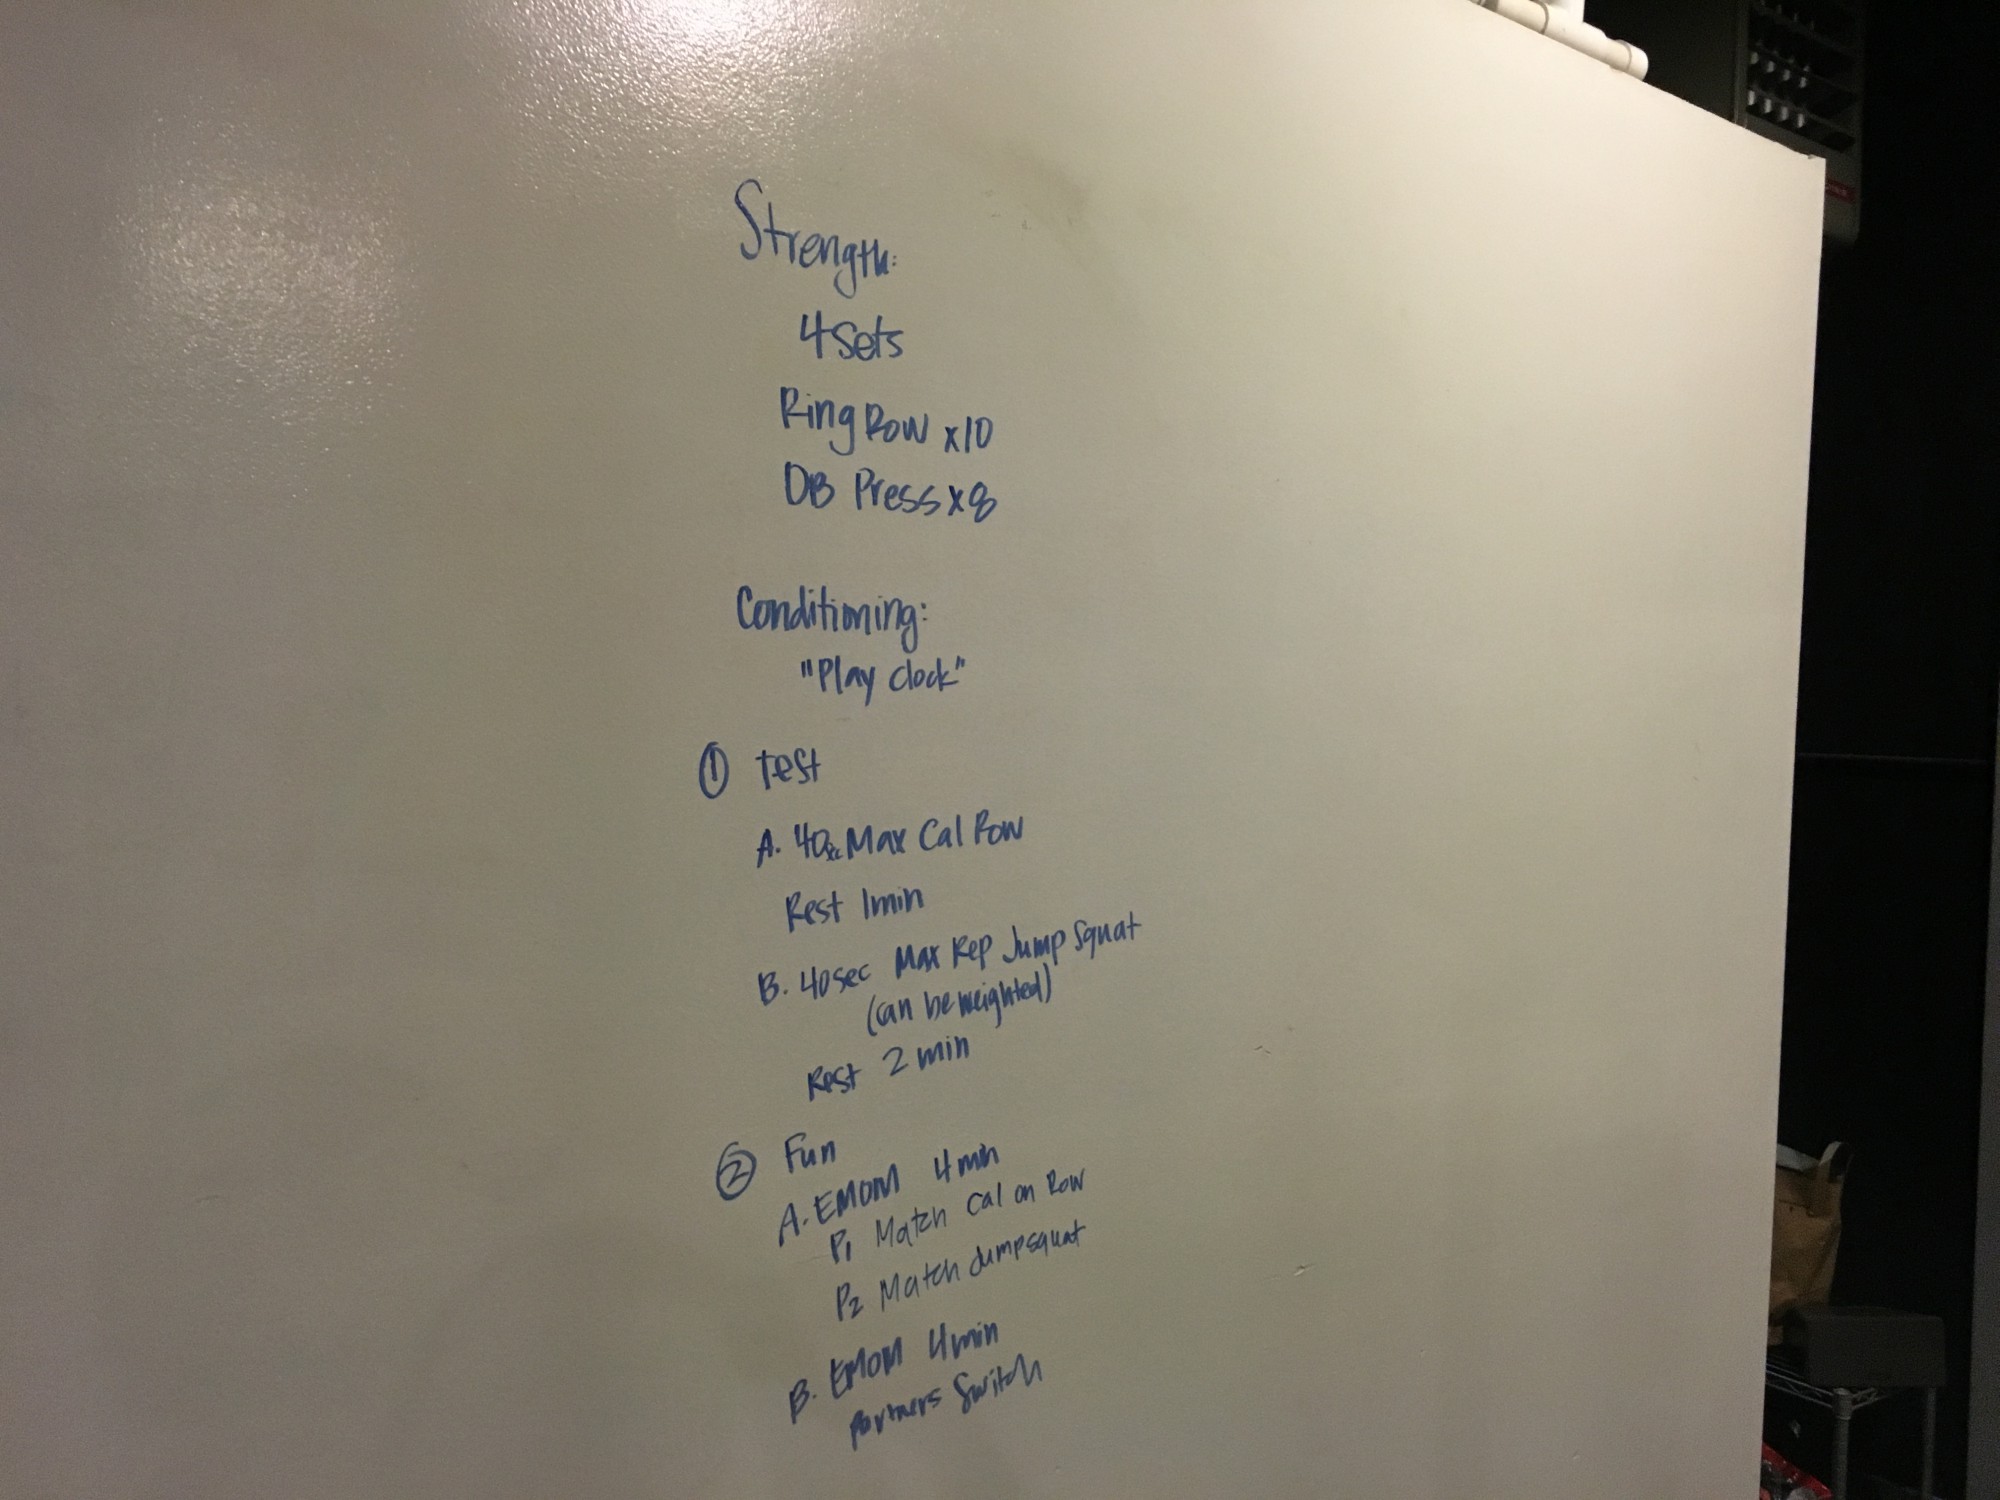 Strength:
4 Sets
Ring Row x10
DB Press x8
Conditioning:
"Play Clock"
① test
A. 40sec Max Cal Row
Rest 1min
B. 40sec Max Rep Jump Squat
(can be weighted)
Rest 2 min
② Fun
A. EMOM 4min
P1 Match Cal on Row
P2 Match Jumpsquat
B. EMOM 4min
Partners Switch